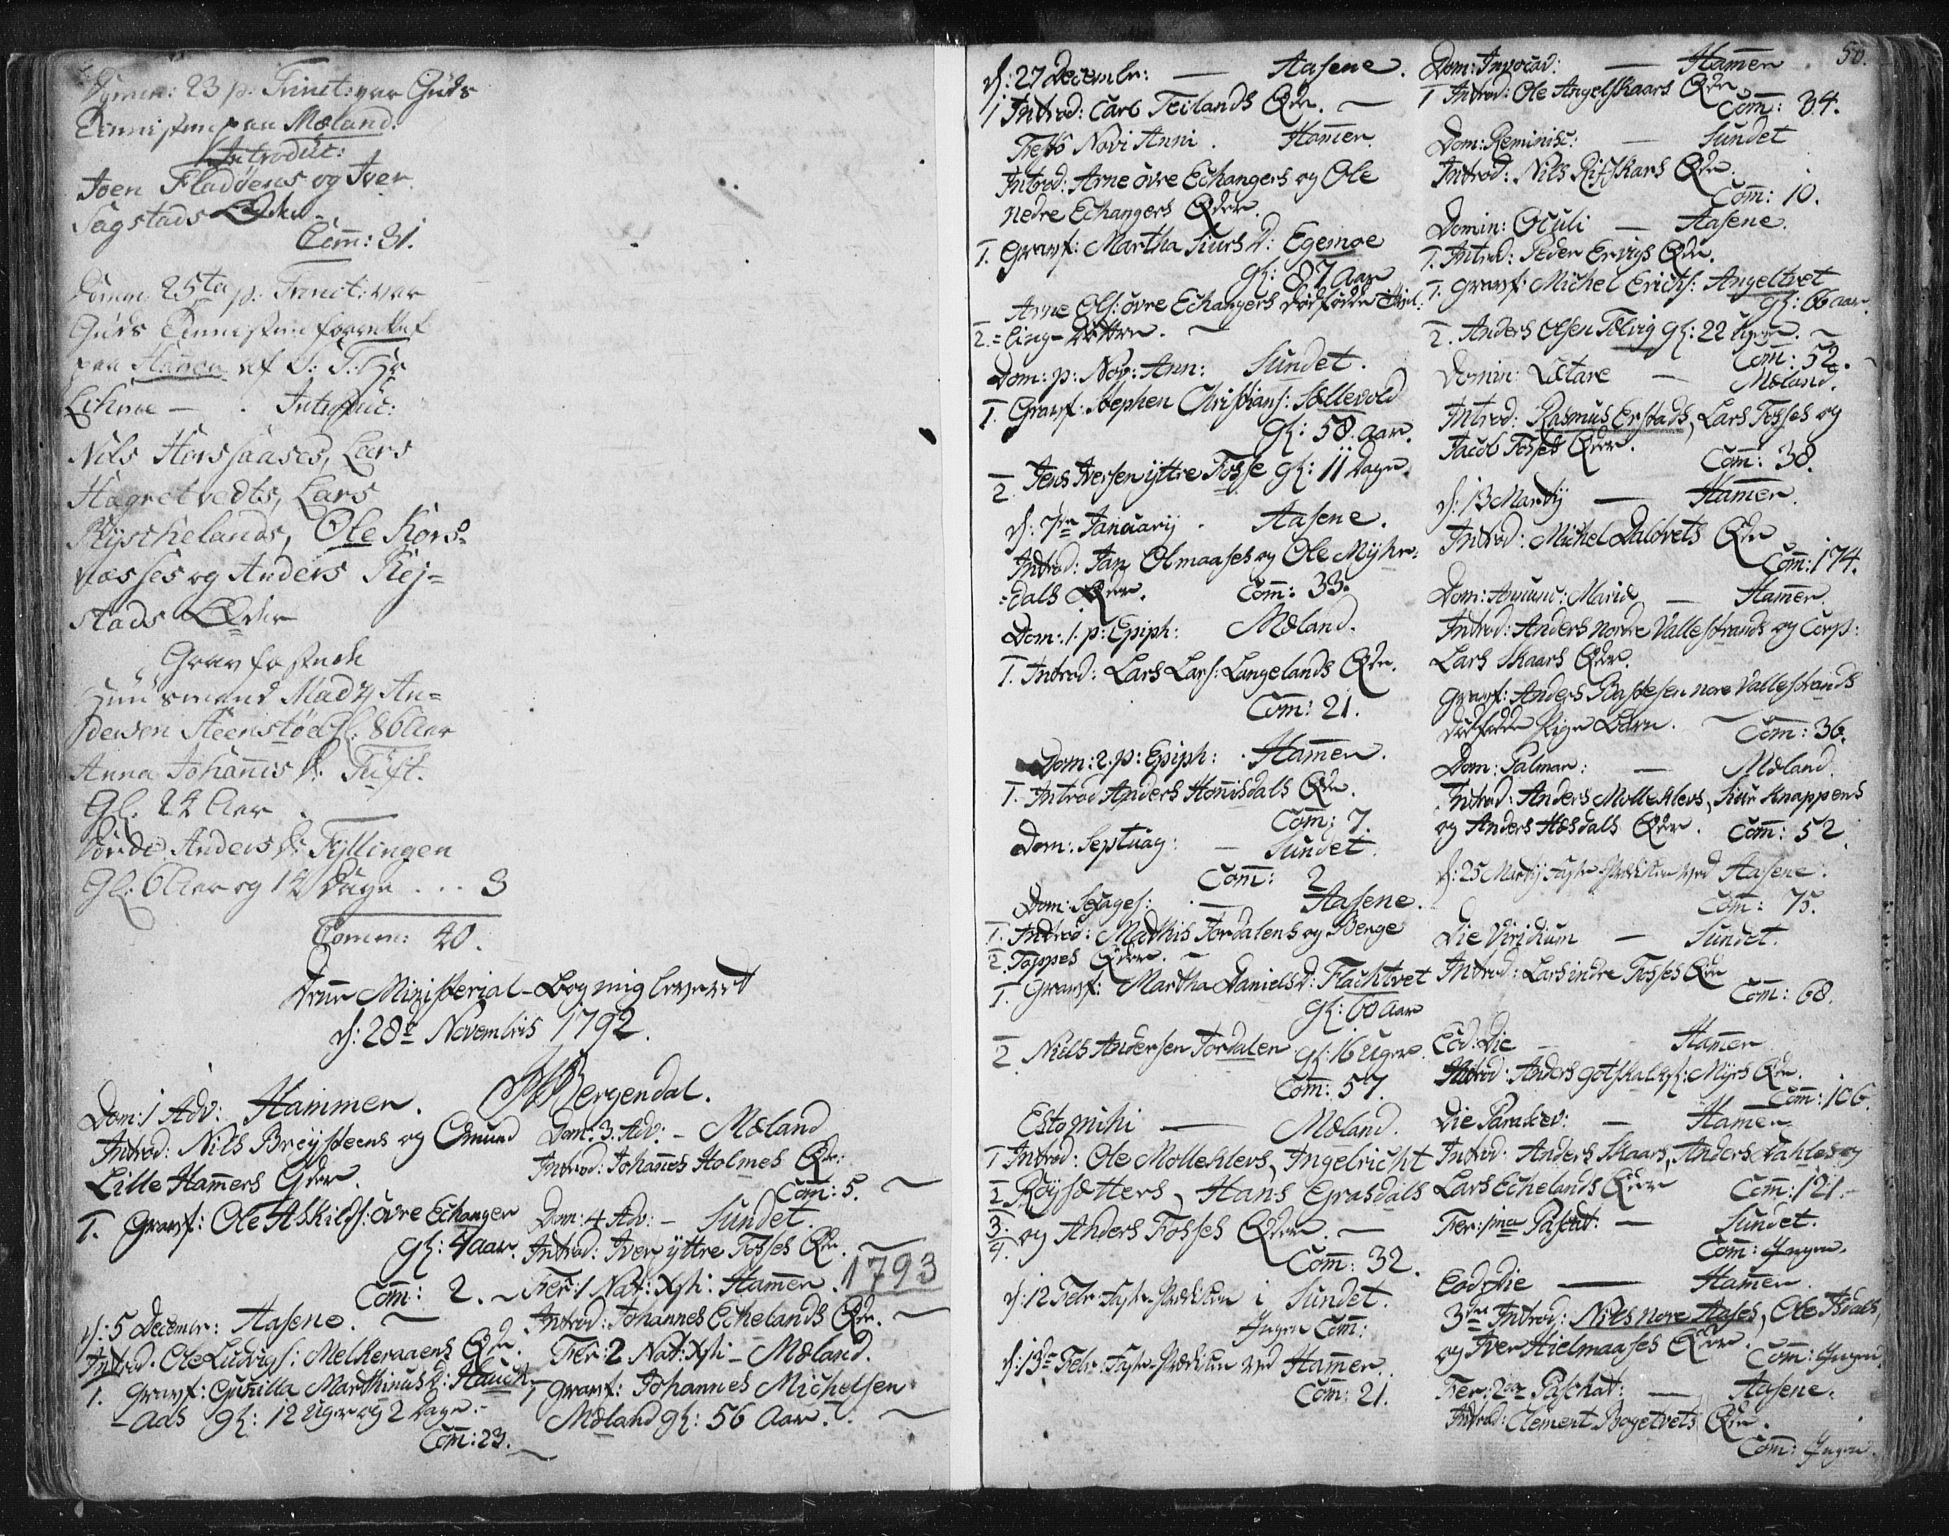 Domin: 23 p. Trinit: var Guds
Tiennisten paa Mæland.
Introduc:
Joen Fladøens og Iver
Sagstads Qder
Com: 31.
Domin: 25ta p: Trinit: var
Guds Tiennisten forrettet
paa Hamen af S: T: Hr
Lehme — Introduc:
Nils Horssaases, Lars
Hagretvedts, Lars
Ryschelands, Ole Kors=
næsses og Anders Rej=
stads Qder
Gravfæstede
Huusmand Mads An=
dersen Steenstøe Gl. 86 Aar
Anna Johannis D: Tuft.
Gl. 24 Aar
Anders D: Fyllingen
Gl: 6 Aar og 14 Dage ... 3
Comm: 40.
Denne Ministerial-bog mig leveret
d: 28de Novembris 1792.
Bergendal.
Dom: 1 Adv: Hammen.
Introd: Nils Breysteens og Emund
Lille Hamers Qder.
1. Gravf: Ole Askilds: øvre Echanger
gl: 4 aar.
Com: 2.
d: 5 Decemr: Aasene.
Introd: Ole Ludvigs: Melkeraaens Qde.
1. Gravf: Gunilla Marthinus D: Hauch
=aas gl: 12 Uger og 2 Dage.
Com: 23.
Dom: 3. Adv: — Mæland
Introd: Johannes Holmes Qde:
Com: 5.
Dom: 4 Adv: — Sundet.
Introd: Iver yttre Fosses Qde.
1793
Fer: 1 Nat: Xsti: Hamen.
Introd: Johannes Echelands Qde.
Fer: 2 Nat: Xsti — Mæland.
1 Gravf: Johannes Michelsen
Mæland gl: 56 Aar.
50.
d: 27 Decembr: — Aasene.
1 Introd: Carl Teilands Qde. —
Festo Novi Anni. Hamer.
Introd: Arne øvre Echangers og Ole
nedre Echangers Qder.
1. Gravf: Martha Siurs D: Egemoe
gl: 87 Aar
Arne Ols: øvre Echangers dødfødde Tvil
2. =ling-Døttre.
Dom: p: Nov: Ann: Sundet.
1. Gravf: Stephen Christians: Sællevold
gl: 58. aar.
2. Jens Iversen yttre Fosse gl: 11 Dage.
d: 7de Januarij. Aasene.
Introd: Jan Olmaases og Ole Myhre=
=dals Qder. Com: 33.
Dom: 1. p: Epiph: Mæland.
1. Introd: Lars Lars: Langelands Qde.
Com: 21.
Dom: 2. p: Epiph: Hamen.
1. Introd Anders Honnisdals Qde.
Com: 7.
Dom: Septuag: — Sundet.
Com: 2
Dom: Sexages: — Aasene.
1. Introd: Mathis Tordalens og Berge
2. Toppes Qder.
1. Gravf: Martha Daniels D: Flachtvet
gl: 60 Aar
2. Niels Andersen Tordalen gl: 16 Uger.
Com: 57.
Estomihi — Mæland.
1 Introd: Ole Molleklevs, Ingelricht
2 Røysætters, Hans Grasdals
3.
4. og Anders Fosses Qder. —
Com: 32.
d: 12 Febr: Faste-Prædiken i Sundet.
Ingen Com:
d: 13de Febr: Faste-Prædiken ved Hamer.
Com: 21.
Dom: Invocav: — Hamen.
1 Introd: Ole Angelskaars Qde.
Com: 34.
Dom: Reminisc: — Sundet
Introd: Nils Rifskars Qde.
Com: 10.
Domin: Oculi — Aasene.
1. Introd: Peder Ervigs Qde.
1. Gravf: Michel Erichs: Angeltvet
gl: 66 aar.
2. Anders Olsen Tolvig gl: 22 Uger.
Com: 52.
Domin: Lætare — Mæland.
Introd: Rasmus Erstads, Lars Fosses og
Jacob Fosses Qder.
Com: 38.
d: 13 Martij — Hamen.
Introd: Michel Daltvets Qde
Com: 174.
Dom: Anunc: Mariæ — Hamer.
Introd: Anders nordre Vallestrands og Corp:
Lars Skaars Qder.
Gravf: Anders Bastesen nore Vallestrands
dødfødde Pige Barn. Com: 36.
Dom: Palmar: — Mæland.
Introd: Anders Molleklevs, Siur Knappens
og Anders Hæsdals Qder. Com: 52
d: 25 Martij Faste-Prædiken ved Aasene.
Com: 75.
Die Viridium — Sundet.
Introd: Lars indre Fosses Qde
Com: 68.
Eod: Die — Hamer
Introd: Anders Gotskalks: Myrs Qde.
Com: 106.
Die Parascev: — Hamen
Introd: Anders Skaars, Anders Dahles og
Lars Echelands Qder Com: 121.
Fer: 1ma Paschat: — Sundet.
Com: Ingen.
Eod: Die — Hamen.
3de Introd: Nils nore Aases, Ole Isdals,
og Iver Hielmaases Qder.
Com: Ingen.
Fer: 2da Paschat: — Aasene.
Introd: Clement Bogetvets Qde.
Com: Ingen.